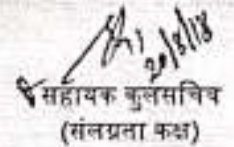 20/8/18
सहायक कुलसचिव
(संलग्रता कक्ष)